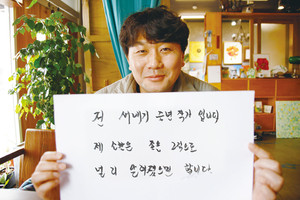 전 새내기 돈년 작가 입니다
제 소망은 좋은 그림으로
널리 알려졌으면 합니다.